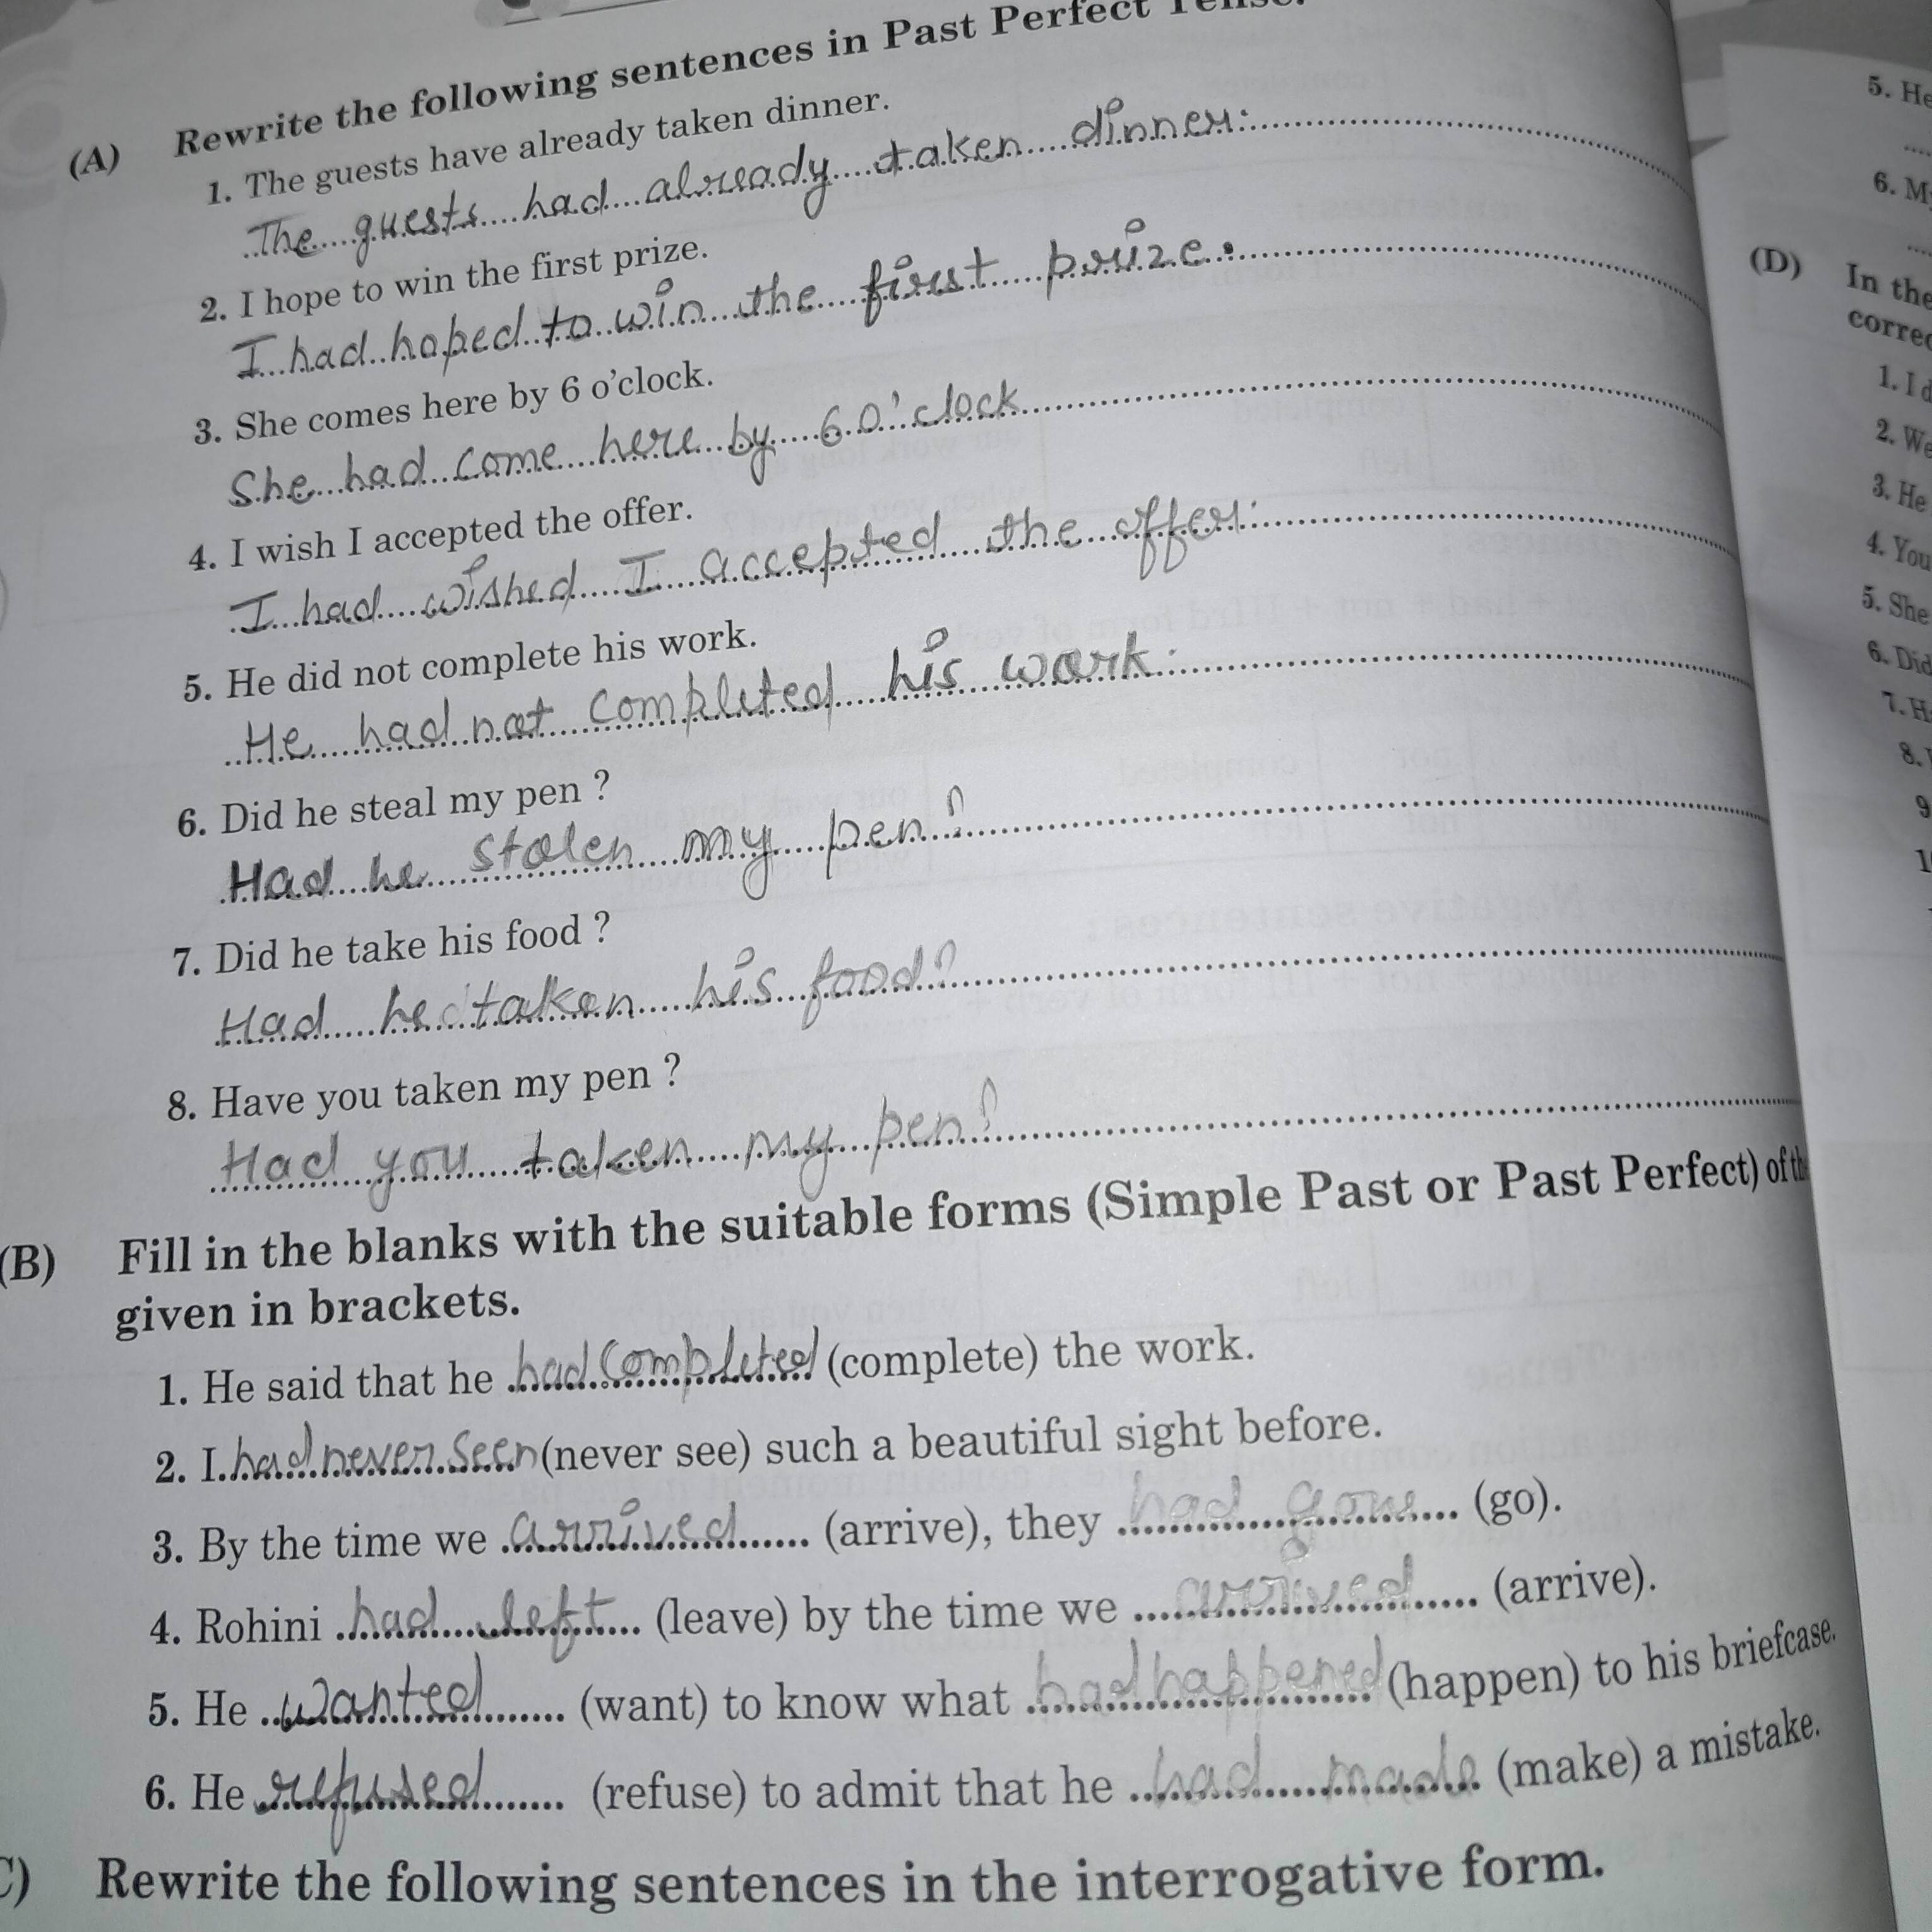 (A) Rewrite the following sentences in Past Perfect Tense.
1. The guests have already taken dinner.
The guests had already taken dinner.
2. I hope to win the first prize.
I had hoped to win the first prize.
3. She comes here by 6 o'clock.
She had come here by 6 O'clock
4. I wish I accepted the offer.
I had wished I accepted the offer.
5. He did not complete his work.
He had not completed his work.
6. Did he steal my pen ?
Had he stolen my pen?
7. Did he take his food ?
Had he taken his food?
8. Have you taken my pen ?
Had you taken my pen?
(B) Fill in the blanks with the suitable forms (Simple Past or Past Perfect) of the
given in brackets.
1. He said that he had completed (complete) the work.
2. I had never seen (never see) such a beautiful sight before.
3. By the time we arrived (arrive), they had gone (go).
4. Rohini had left (leave) by the time we arrived (arrive).
5. He wanted (want) to know what had happened (happen) to his briefcase.
6. He refused (refuse) to admit that he had made (make) a mistake.
C) Rewrite the following sentences in the interrogative form.
5. He
6. My
(D) In the
correc
1. I d
2. We
3. He
4. You
5. She
6. Did
7. H
8.
9